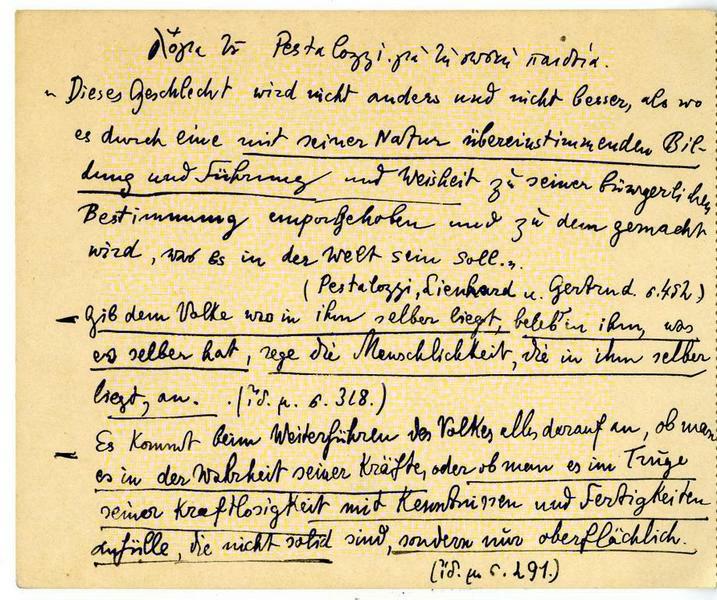 Λόγια τοῦ Pestalozzi γιὰ τὴ σωστὴ παιδεία.
„ Dieses Geschlecht wird nicht anders und nicht besser, als wo
es durch eine mit seiner Natur übereinstimmenden Bil-
dung und Führung und Weisheit zu seiner bürgerlichen
Bestimmung emporgehoben und zu dem gemacht
wird, was es in der Welt sein soll.„
( Pestalozzi, Lienhard u. Gertrud. σ. 452)
— Gib dem Volke wo in ihm selber liegt, beleben ihm, was
es selber hat, rege die Menschlichkeit, die in ihm selber
liegt, an. . (ἴδ. μ. σ. 318.)
— Es kommt beim Weiterführen des Volkes alles darauf an, ob man
es in der Wahrheit seiner Kräfte, oder ob man es im Truge
seiner Kraftlosigkeit mit Kenntnissen und Fertigkeiten
anfülle, die nicht solid sind, sondern nur oberflächlich.
(ἴδ. μ σ. 291.)